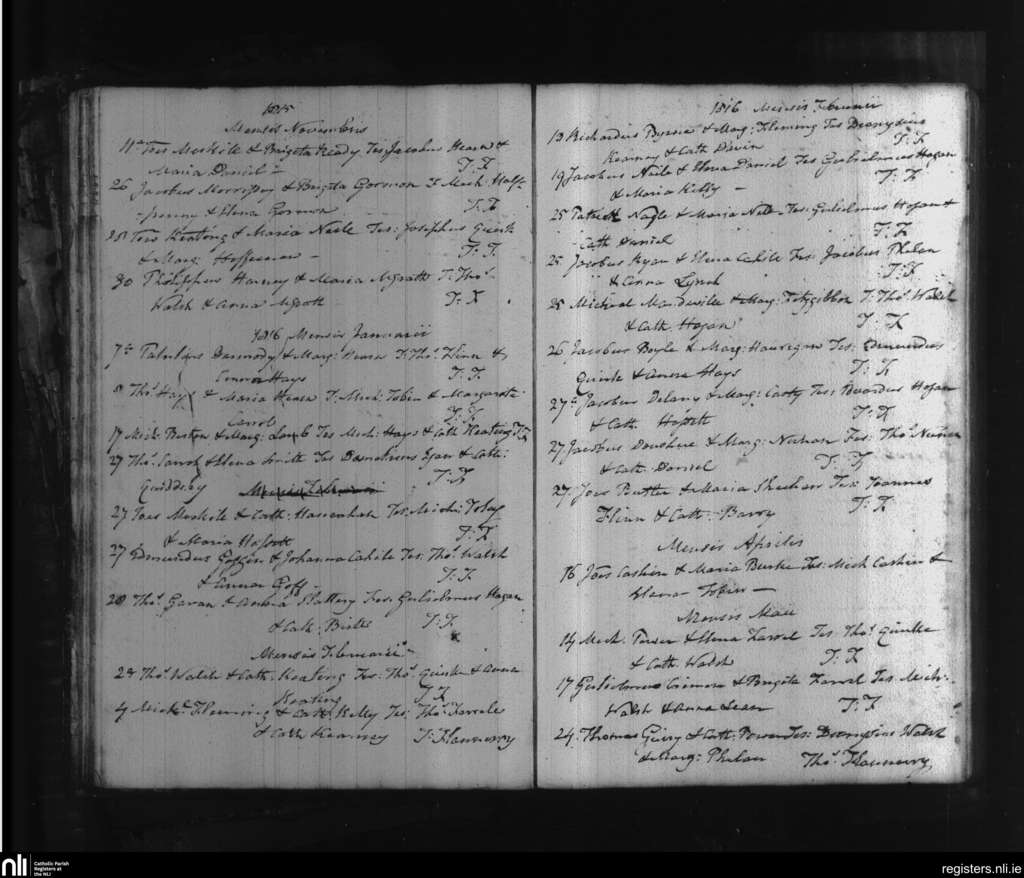 1815
Mensis Novembris
11 Joes Meskile & Brigita Ready Tes: Jacobus Hearn &
Maria Daniel T: F
26 Jacobus Morrissy & Brigita Gorman T: Mich: Half-
-penny & Elena Gorman T: F
Joes Keating & Maria Neale Tes: Josephus Quirk
& Marg: Heffernan T: F.
30 Philippus Harney & Maria Mgrath T: Thos.
Walsh & Anna Mgrath T: F
1816 Mensis Januarii
7 Dermody & Marg: T: Thos. Flinn &
Hays T: F.
8 Thos. Hays & Maria T: Mich: Tobin & Margareta
Carrol T: F
17 Mich: & Marg: Long Tes Mich: Hays & Cath: Keating T: F
27 Thos. Carrol & Elena Smith Tes Egan & Cath:
T: F
Mensis Februarii
27 Joes Meskile & Cath: Tes: Mich: Foley
& Maria T: F
27 Edmundus & Johanna Cahile Tes: Thos. Walsh
& Goff T: F.
28 Thos. Gavan & Slattery Tes: Gulielmus Hogan
& Cath: T: F
Mensis Februarii
28 Thos. Walsh & Cath: Keating Tes: Thos. Quirke & Anna
Keating T: F
4 Mich: Fleming & Cath: Kelly Tes: Thos. Farrele
& Cath Kearney T: Flannerry
1816 Mensis Februarii
13 Richardus Byrne & Marg: Fleming Tes Dionysius
Kearney & Cath Devin T: F
19 Jacobus Neile & Elena Daniel Tes Gulielmus Hogan
& Maria Kelly T: F
25 Patrick Nagle & Maria Tes: Gulielmus Hogan &
Cath Daniel T: F
25 Jacobus Ryan & Elena Cahile Tes: Jacobus Phelan
& Anna Lynch T: F
25 Micheal Mandeville & Mary: Fitzgibbon T: Thos. Walsh
& Cath. Hogan T: F
26 Jacobus Boyle & Marg: Tes: Edmundus
Quirk & Anna Hays T: F
27 Jacobus Delany & Marg: Carthy Tes: Hogan
& Cath. T: F
27 Jacobus Donohue & Marg: Nunan Tes: Thos. Nunan
& Cath. Daniel T: F
27. Joes Butler & Maria Sheehan Tes: Joannes
Flinn & Cath: Barry T: F
Mensis Aprilis
16 Joes Cashin & Maria Burke Tes: Mich Cashin &
Elena Tobin
Mensis Maii
14 Mich: Power & Elena Farrel Tes: Thos. Quirke
& Cath Walsh T: F
17 Gulielmus & Brigita Farrel Tes: Mich:
Walsh & Anna T: F
24. Thomas Guiry & Cath: Power Tes: Dionysius Walsh
& Marg: Phelan Thos. Flannerry
nli
Catholic Parish
Registers at
the NLI
registers.nli.ie